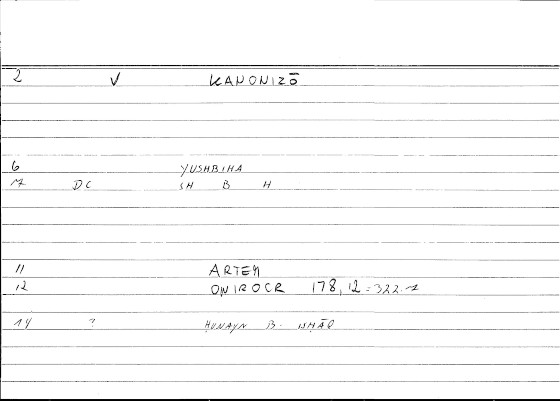 2 V KANONIZŌ
6 YUSHBIHA
7 DC SH B H
11 ARTEM
12 ONIROCR 178,12=322.7
14 ? ḤUNAYN B. ISḤĀQ